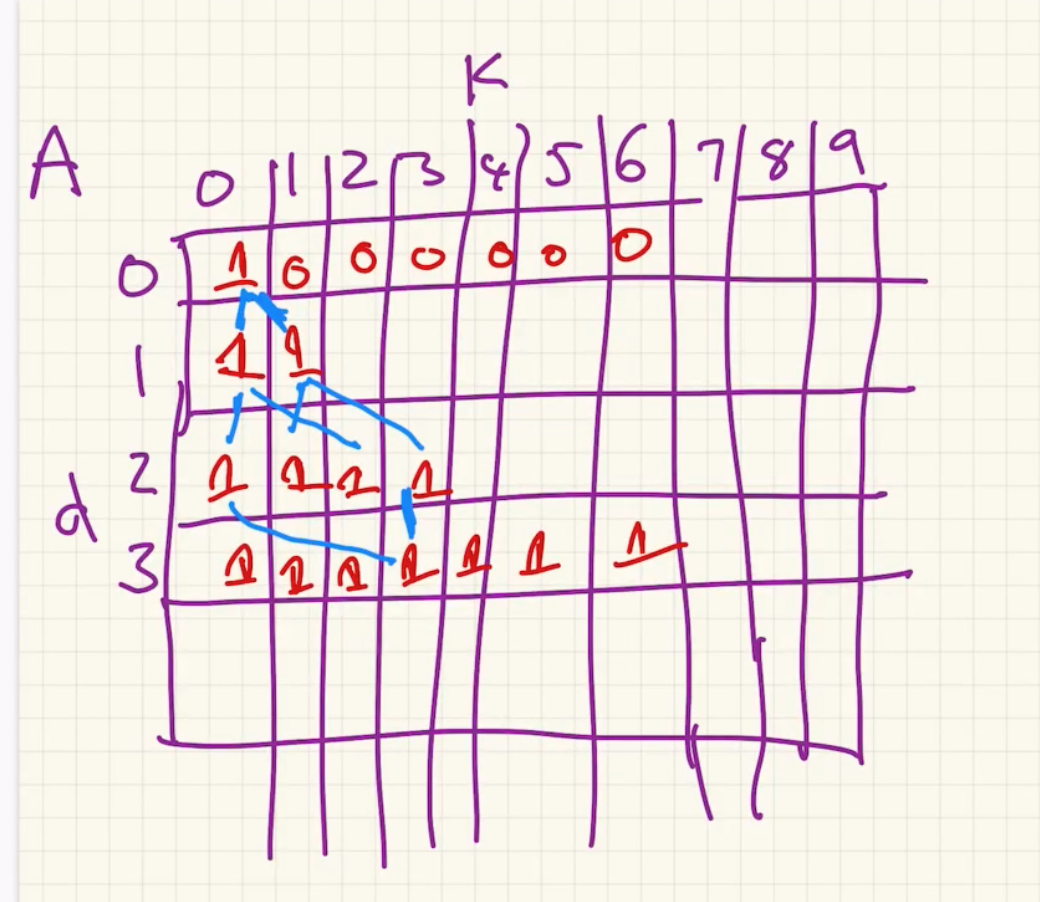 K
A 0 1 2 3 4 5 6 7 8 9
0 1 0 0 0 0 0 0
1 1 1
2 1 1 1 1
d
3 1 1 1 1 1 1 1